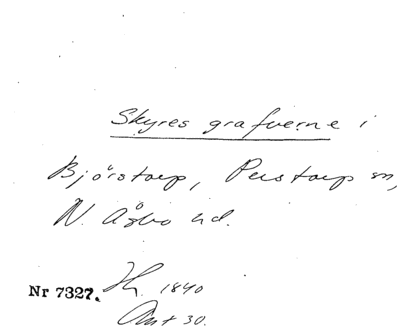 Skyres grafverne i
Björstorp, Perstorp sn,
N. Åsbo hd.
Nr 7327. H. 1840
Ant 30.